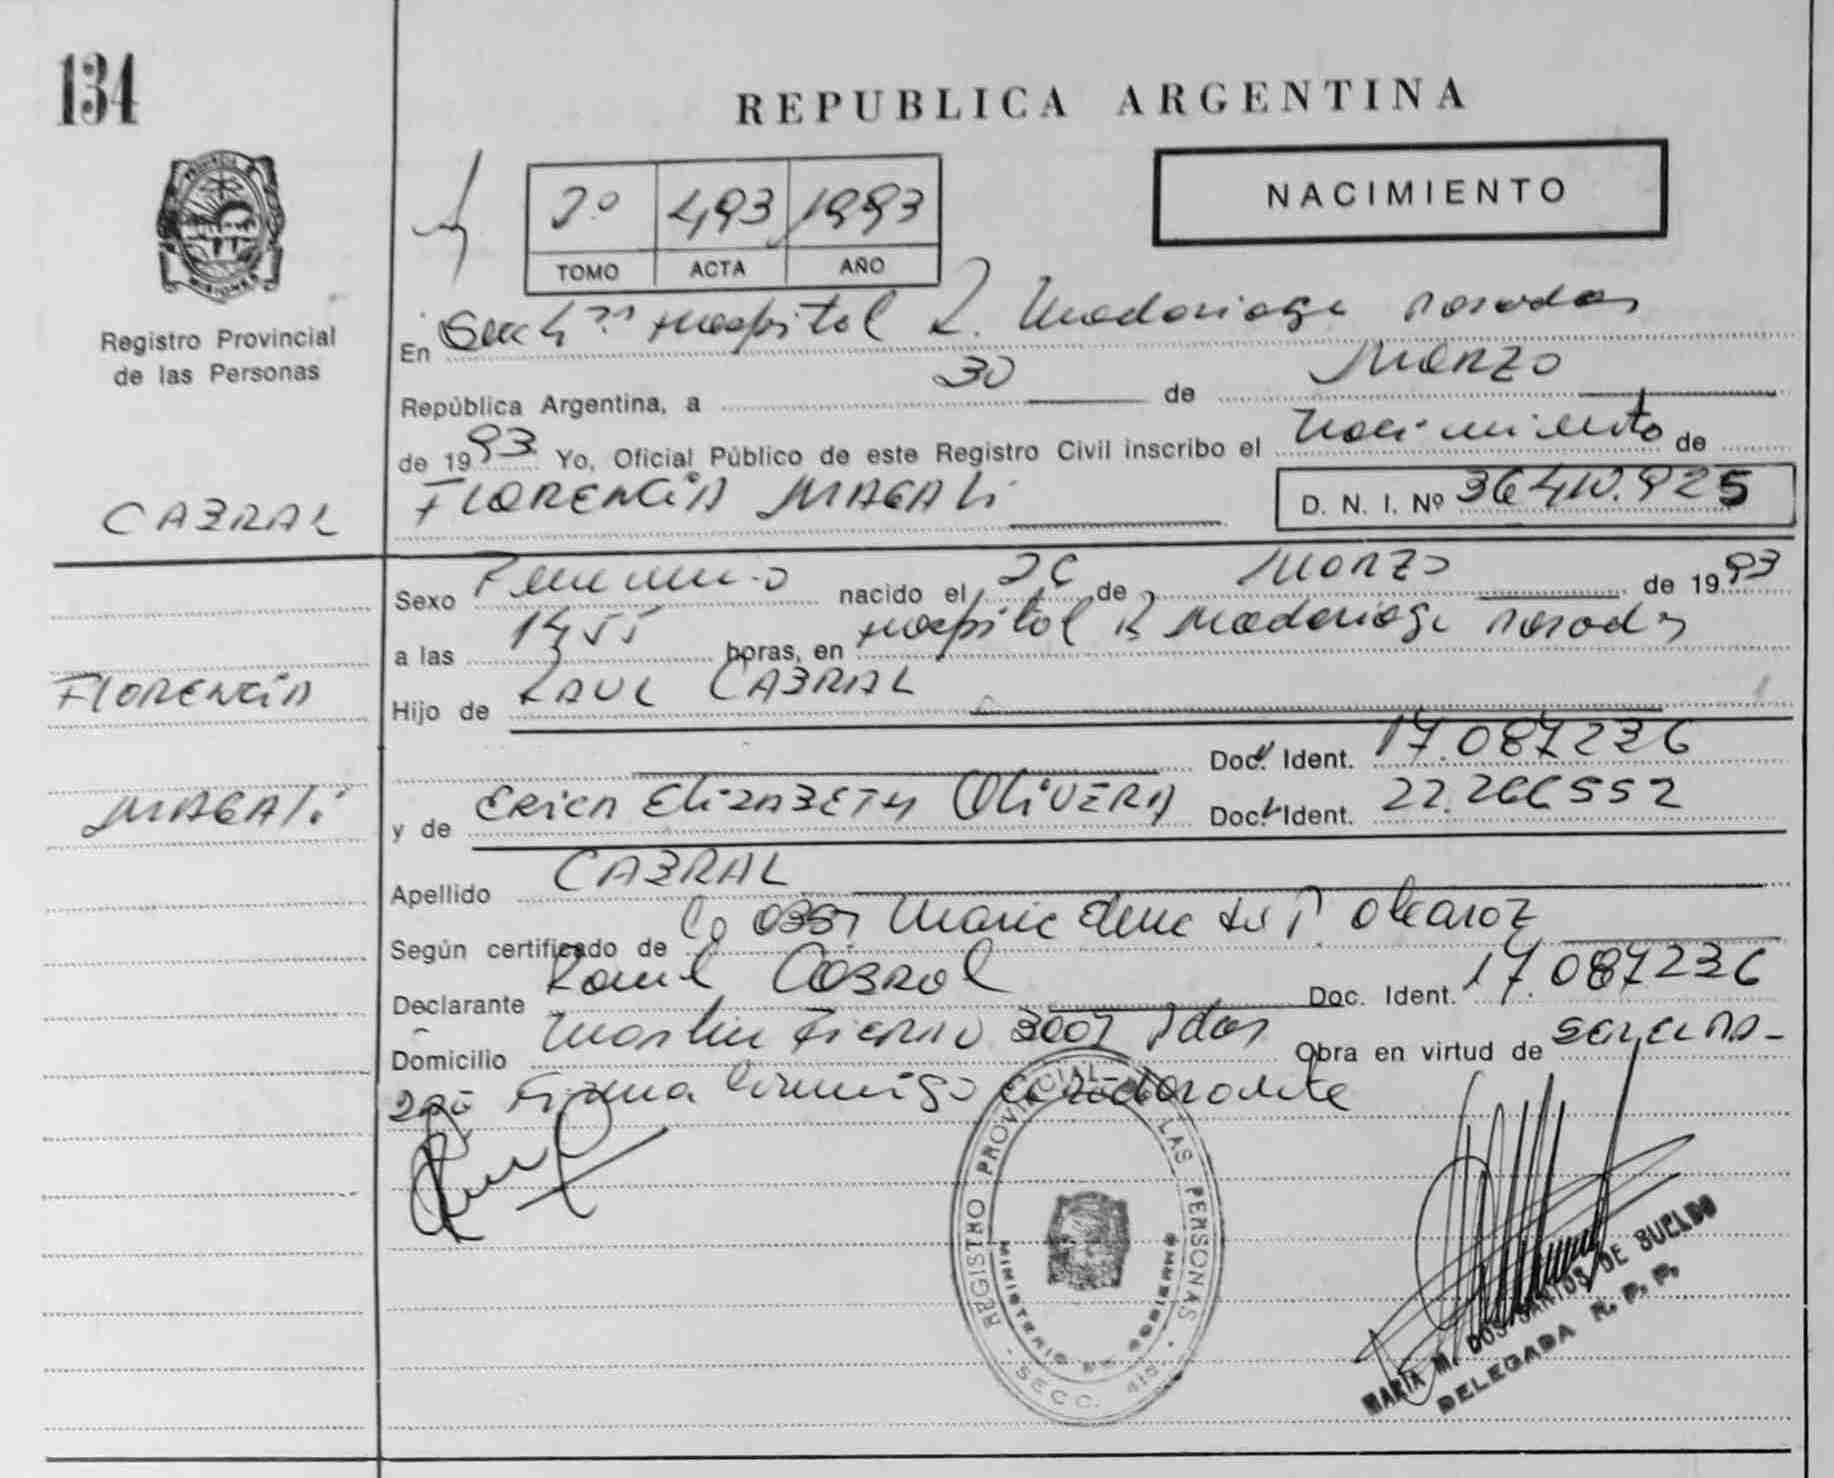 134
REPUBLICA ARGENTINA
PROVINCIA DE MISIONES
Registro Provincial
de las Personas
2º 493 1993
TOMO ACTA AÑO
NACIMIENTO
En Hospital R. Madariaga Posadas
República Argentina, a 30 de Marzo
de 1993 Yo, Oficial Público de este Registro Civil inscribo el Nacimiento de
CABRAL
FLORENCIA MAGALI
D. N. I. Nº 36.410.925
Sexo Femenino nacido el 26 de Marzo de 1993
a las 14,55 horas, en Hospital R Madariaga Posadas
FLORENCIA
Hijo de RAUL CABRAL
Doc. Ident. 17.087236
MAGALI
y de ERICA ELIZABETH OLIVERA Doc. Ident. 22.266552
Apellido CABRAL
Según certificado de Maria Elena
Declarante Raul Cabral Doc. Ident. 17.087236
Domicilio Martin Fierro 3007 Pdas Obra en virtud de
Firma Conmigo declarante
REGISTRO PROVINCIAL DE LAS PERSONAS
MINISTERIO DE GOBIERNO
SECC. 415
MARIA M. DOS SANTOS DE BUELDO
DELEGADA R. P. P.